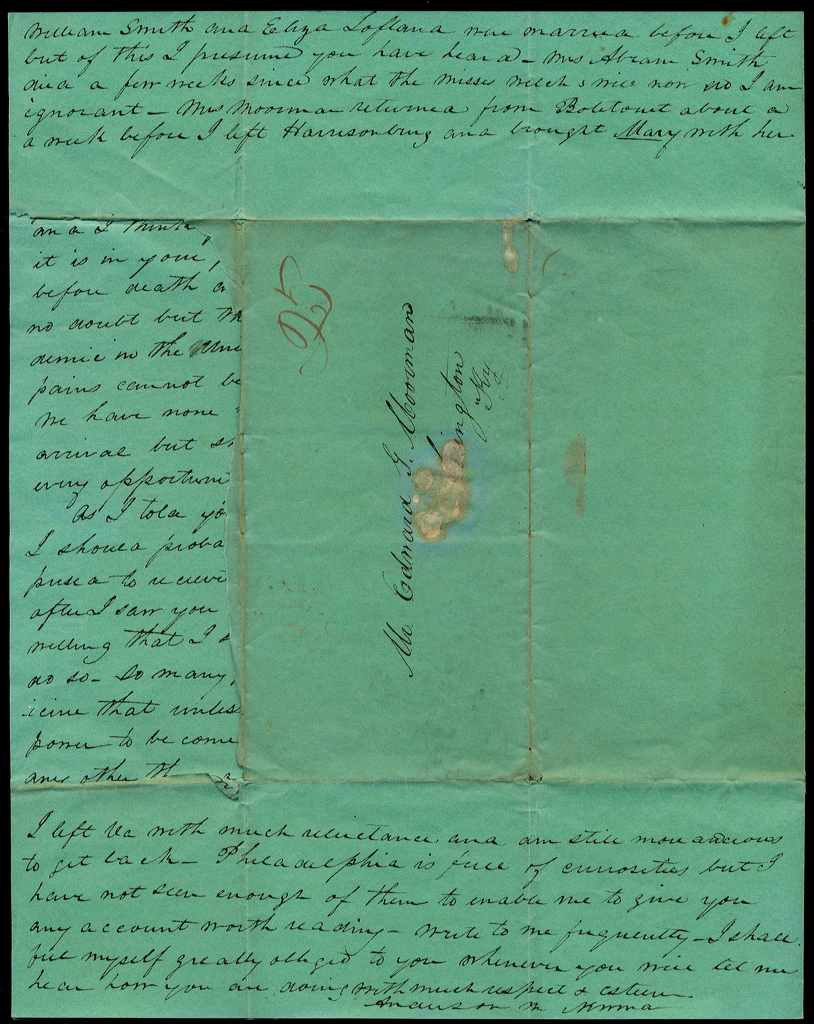 William Smith and Eliza Lofland were married before I left
but of this I presume you have heard – Mrs Abram Smith
died a few weeks since what the misses Welch's will now do I am
ignorant – Mrs Moorman returned from Botetourt about a
a week before I left Harrisonburg and brought Mary with her
and I think
it is in your
before death
no doubt but th
demic in the Uni
pains cannot be
We have none
arrival but sh
every opportuni
As I told yo
I should proba
posed to receive
after I saw you
willing that I s
do so – So many
icine that unles
power to be come
any other th
25
Mr. Edward G. Moorman
ington
Ky
I left Va with much reluctance and am still more anxious
to get back – Philadelphia is full of curiosities but I
have not seen enough of them to enable me to give you
any account worth reading – Write to me frequently – I shall
feel myself greatly obliged to you whenever you will let me
hear how you are doing with much respect & esteem
Anderson M